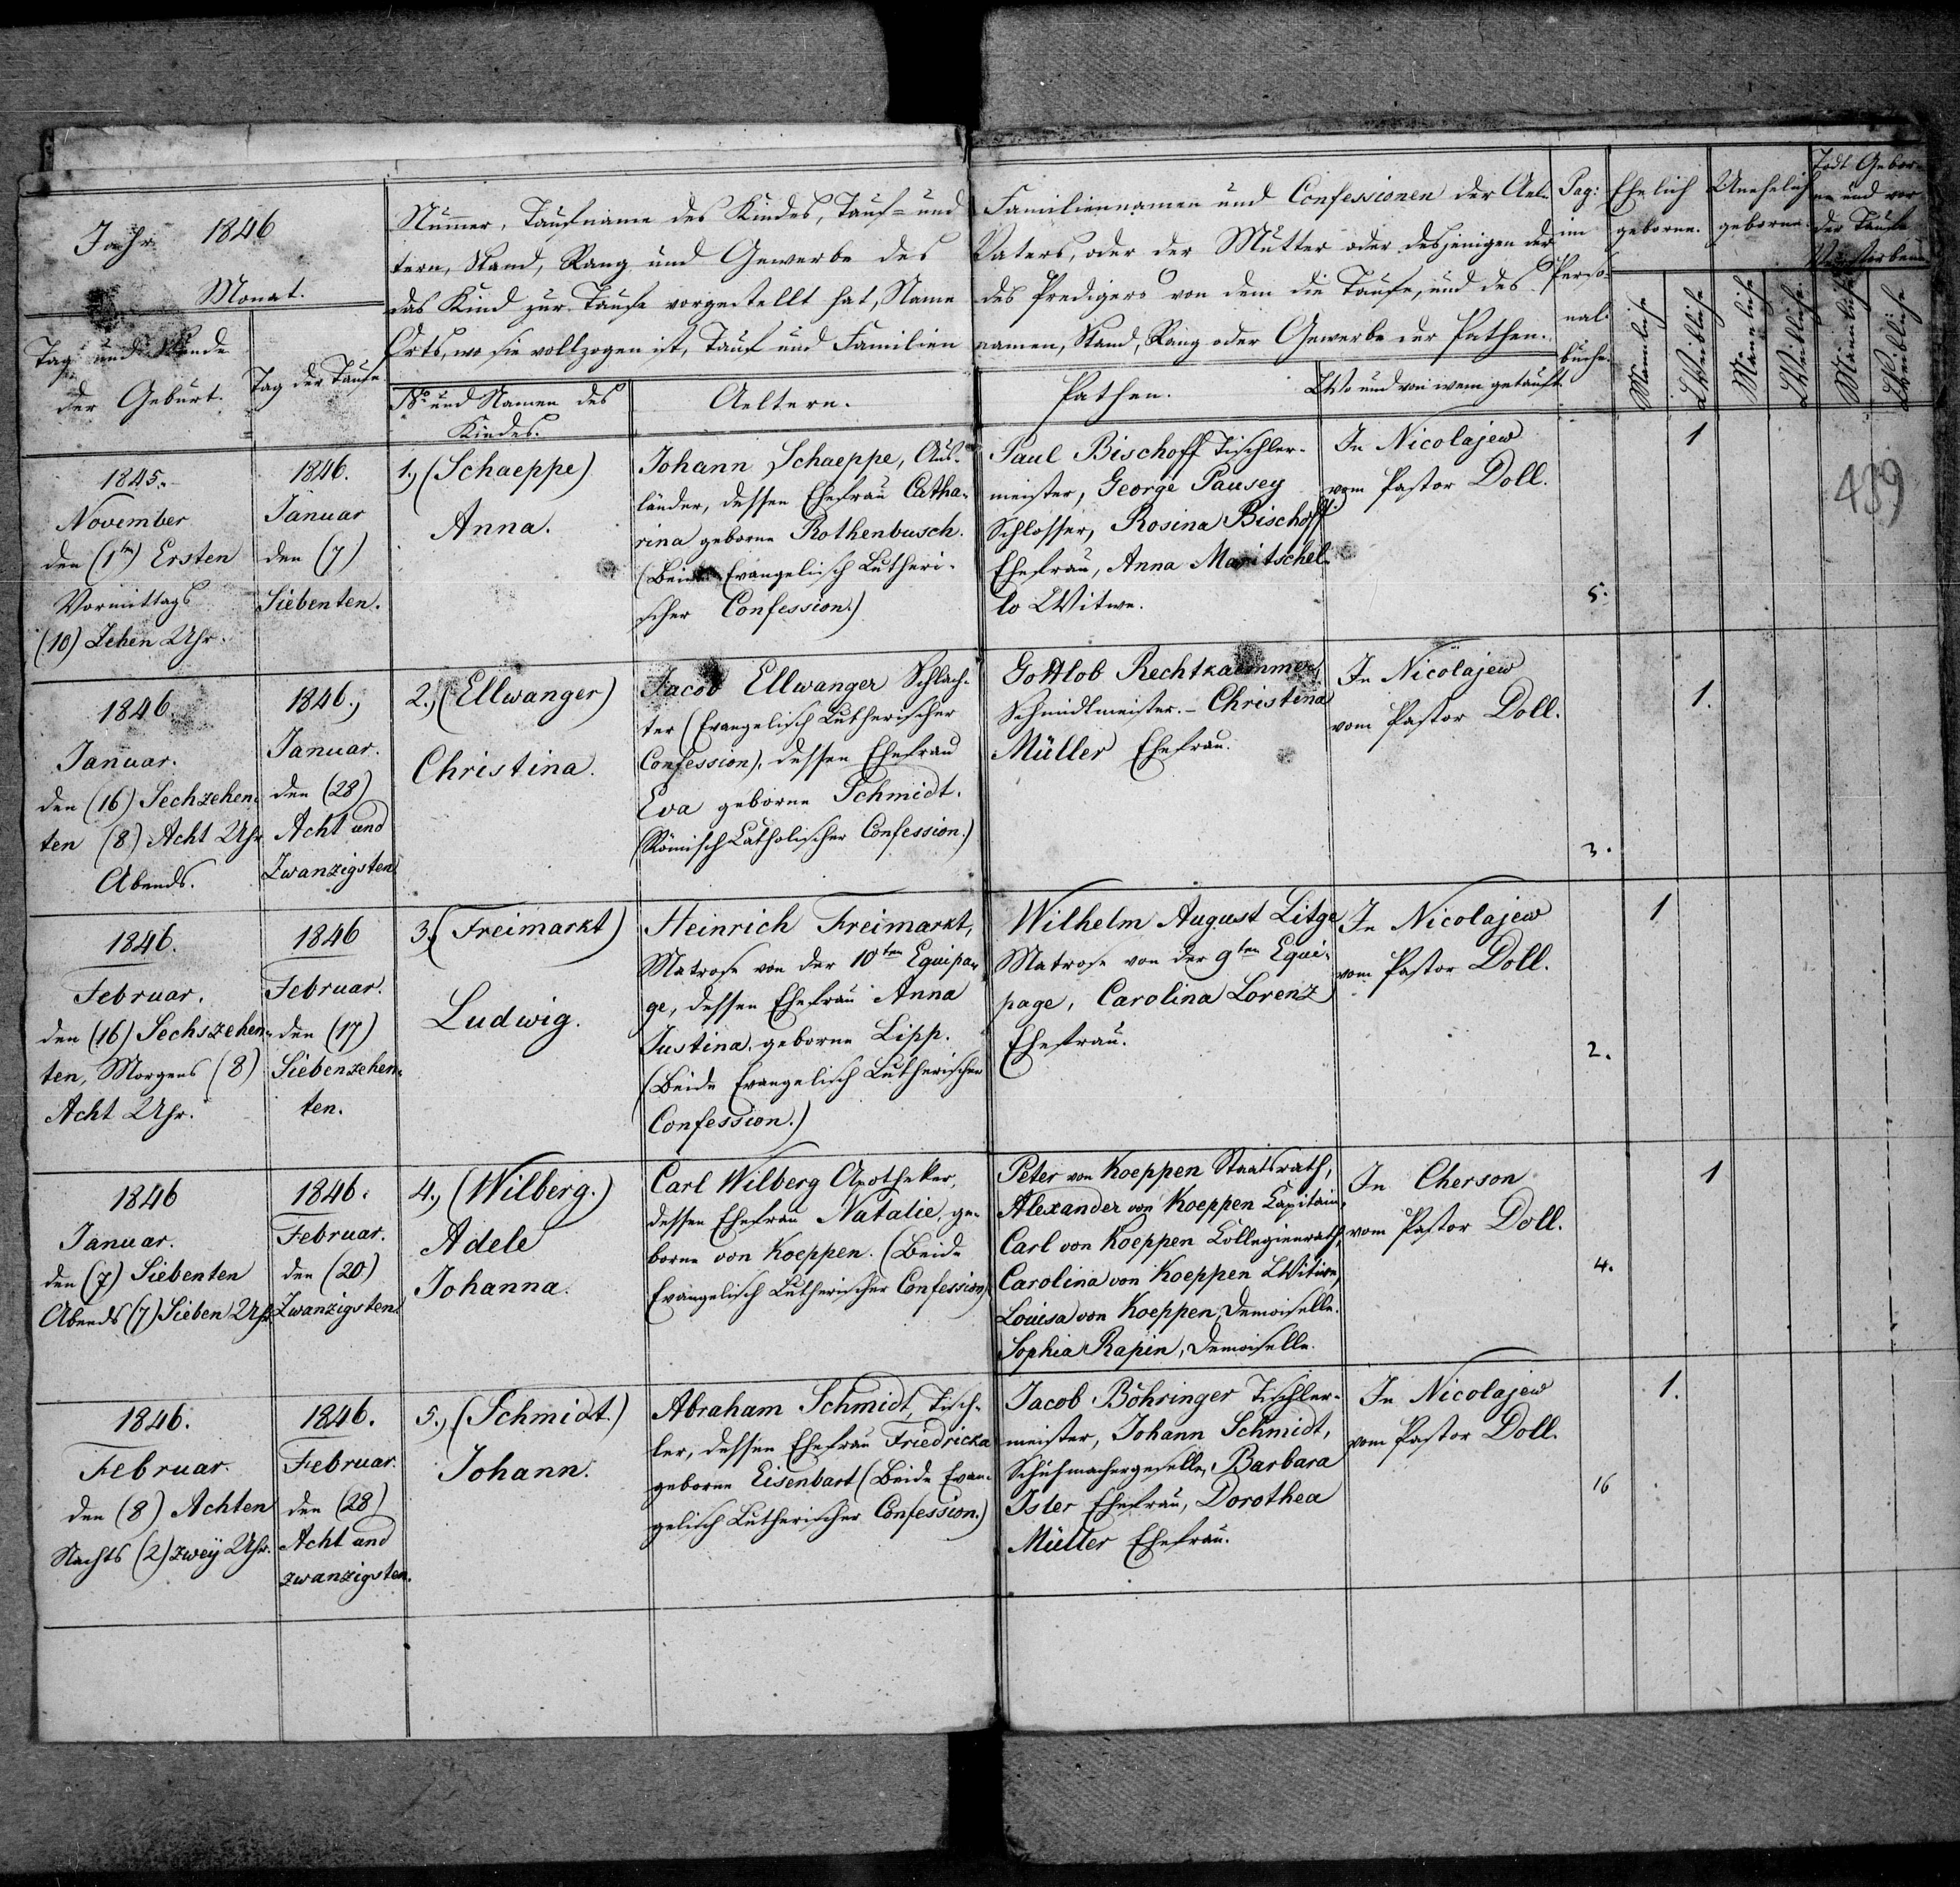 Jahr 1846
Monat.
Tag und Stunde
der Geburt.
Tag der Taufe
Num̅er, Taufname des Kindes, Tauf- und Familiennamen und Confessionen der Ael-
tern, Stand, Rang und Gewerbe des Vaters, oder der Mutter oder desjenigen der
das Kind zur Taufe vorgestellt hat, Name des Predigers von dem die Taufe, und des
Orts, wo sie vollzogen ist, Tauf und Familien namen, Stand, Rang oder Gewerbe der Pathen.
No und Namen des
Kindes.
Aeltern.
Pathen.
Wo und von wem getauft.
Pag:
im
Perso-
nal-
buche.
Ehelich
geborne.
Unehelich
geborne.
Todt Gebor-
ne und vor
der Taufe
Verstorbene
Mänliche
Weibliche
Mänliche
Weibliche
Mänliche
Weibliche
439
1845.
November
den (1ten) Ersten
Vormittags
(10) Zehen Uhr.
1846.
Januar
den (7)
Siebenten.
1., (Schaeppe)
Anna.
Johann Schaeppe, Aus-
länder, dessen Ehefrau Catha-
rina geborne Rothenbusch.
(Beide Evangelisch Lutheri-
scher Confession.)
Paul Bischoff Tischler-
meister, George Pausey
Schlosser, Rosina Bischoff
Ehefrau, Anna Maritschel-
lo Witwe.
In Nicolajew
vom Pastor Doll.
5.
1
1846.
Januar.
den (16) Sechzehen-
ten (8) Acht Uhr
Abends.
1846.,
Januar.
den (28)
Acht und
Zwanzigsten.
2., (Ellwanger)
Christina.
Jacob Ellwanger Schlach-
ter (Evangelisch Lutherischer
Confession), dessen Ehefrau
Eva geborne Schmidt.
(Römisch Catholischer Confession.)
Gottlob Rechtkaemmer,
Schmidtmeister. - Christina
Müller Ehefrau.
In Nicolajew
vom Pastor Doll.
3.
1.
1846.
Februar.
den (16) Sechszehen-
ten, Morgens (8)
Acht Uhr.
1846
Februar.
den (17)
Siebenzehen-
ten.
3., (Freimarkt)
Ludwig.
Heinrich Freimarkt,
Matrose von der 10ten Equipa-
ge, dessen Ehefrau Anna
Justina. geborne Lipp.
(Beide Evangelisch Lutherischer
Confession.)
Wilhelm August Litge
Matrose von der 9ten Equi-
page, Carolina Lorenz
Ehefrau.
In Nicolajew
vom Pastor Doll.
2.
1
1846
Januar.
den (7) Siebenten
Abends (7) Sieben Uhr
1846.
Februar.
den (20)
Zwanzigsten.
4., (Wilberg.)
Adele
Johanna.
Carl Wilberg Apotheker,
dessen Ehefrau Natalie, ge-
borne von Koeppen. (Beide
Evangelisch Lutherischer Confession)
Peter von Koeppen Staatsrath,
Alexander von Koeppen Capitain,
Carl von Koeppen Collegienrath,
Carolina von Koeppen Witwe,
Louisa von Koeppen, Demoiselle.
Sophia Rapin, Demoiselle.
In Cherson
vom Pastor Doll.
4.
1
1846.
Februar.
den (8) Achten
Nachts (2) zwey Uhr.
1846.
Februar.
den (28)
Acht und
zwanzigsten.
5., (Schmidt.)
Johann.
Abraham Schmidt, Tisch-
ler, dessen Ehefrau Friedricka
geborne Eisenbart (Beide Evan-
gelisch Lutherischer Confession.)
Jacob Böhringer Tischler-
meister, Johann Schmidt,
Schuhmachergeselle, Barbara
Ister Ehefrau, Dorothea
Müller Ehefrau.
In Nicolajew
vom Pastor Doll.
16
1.